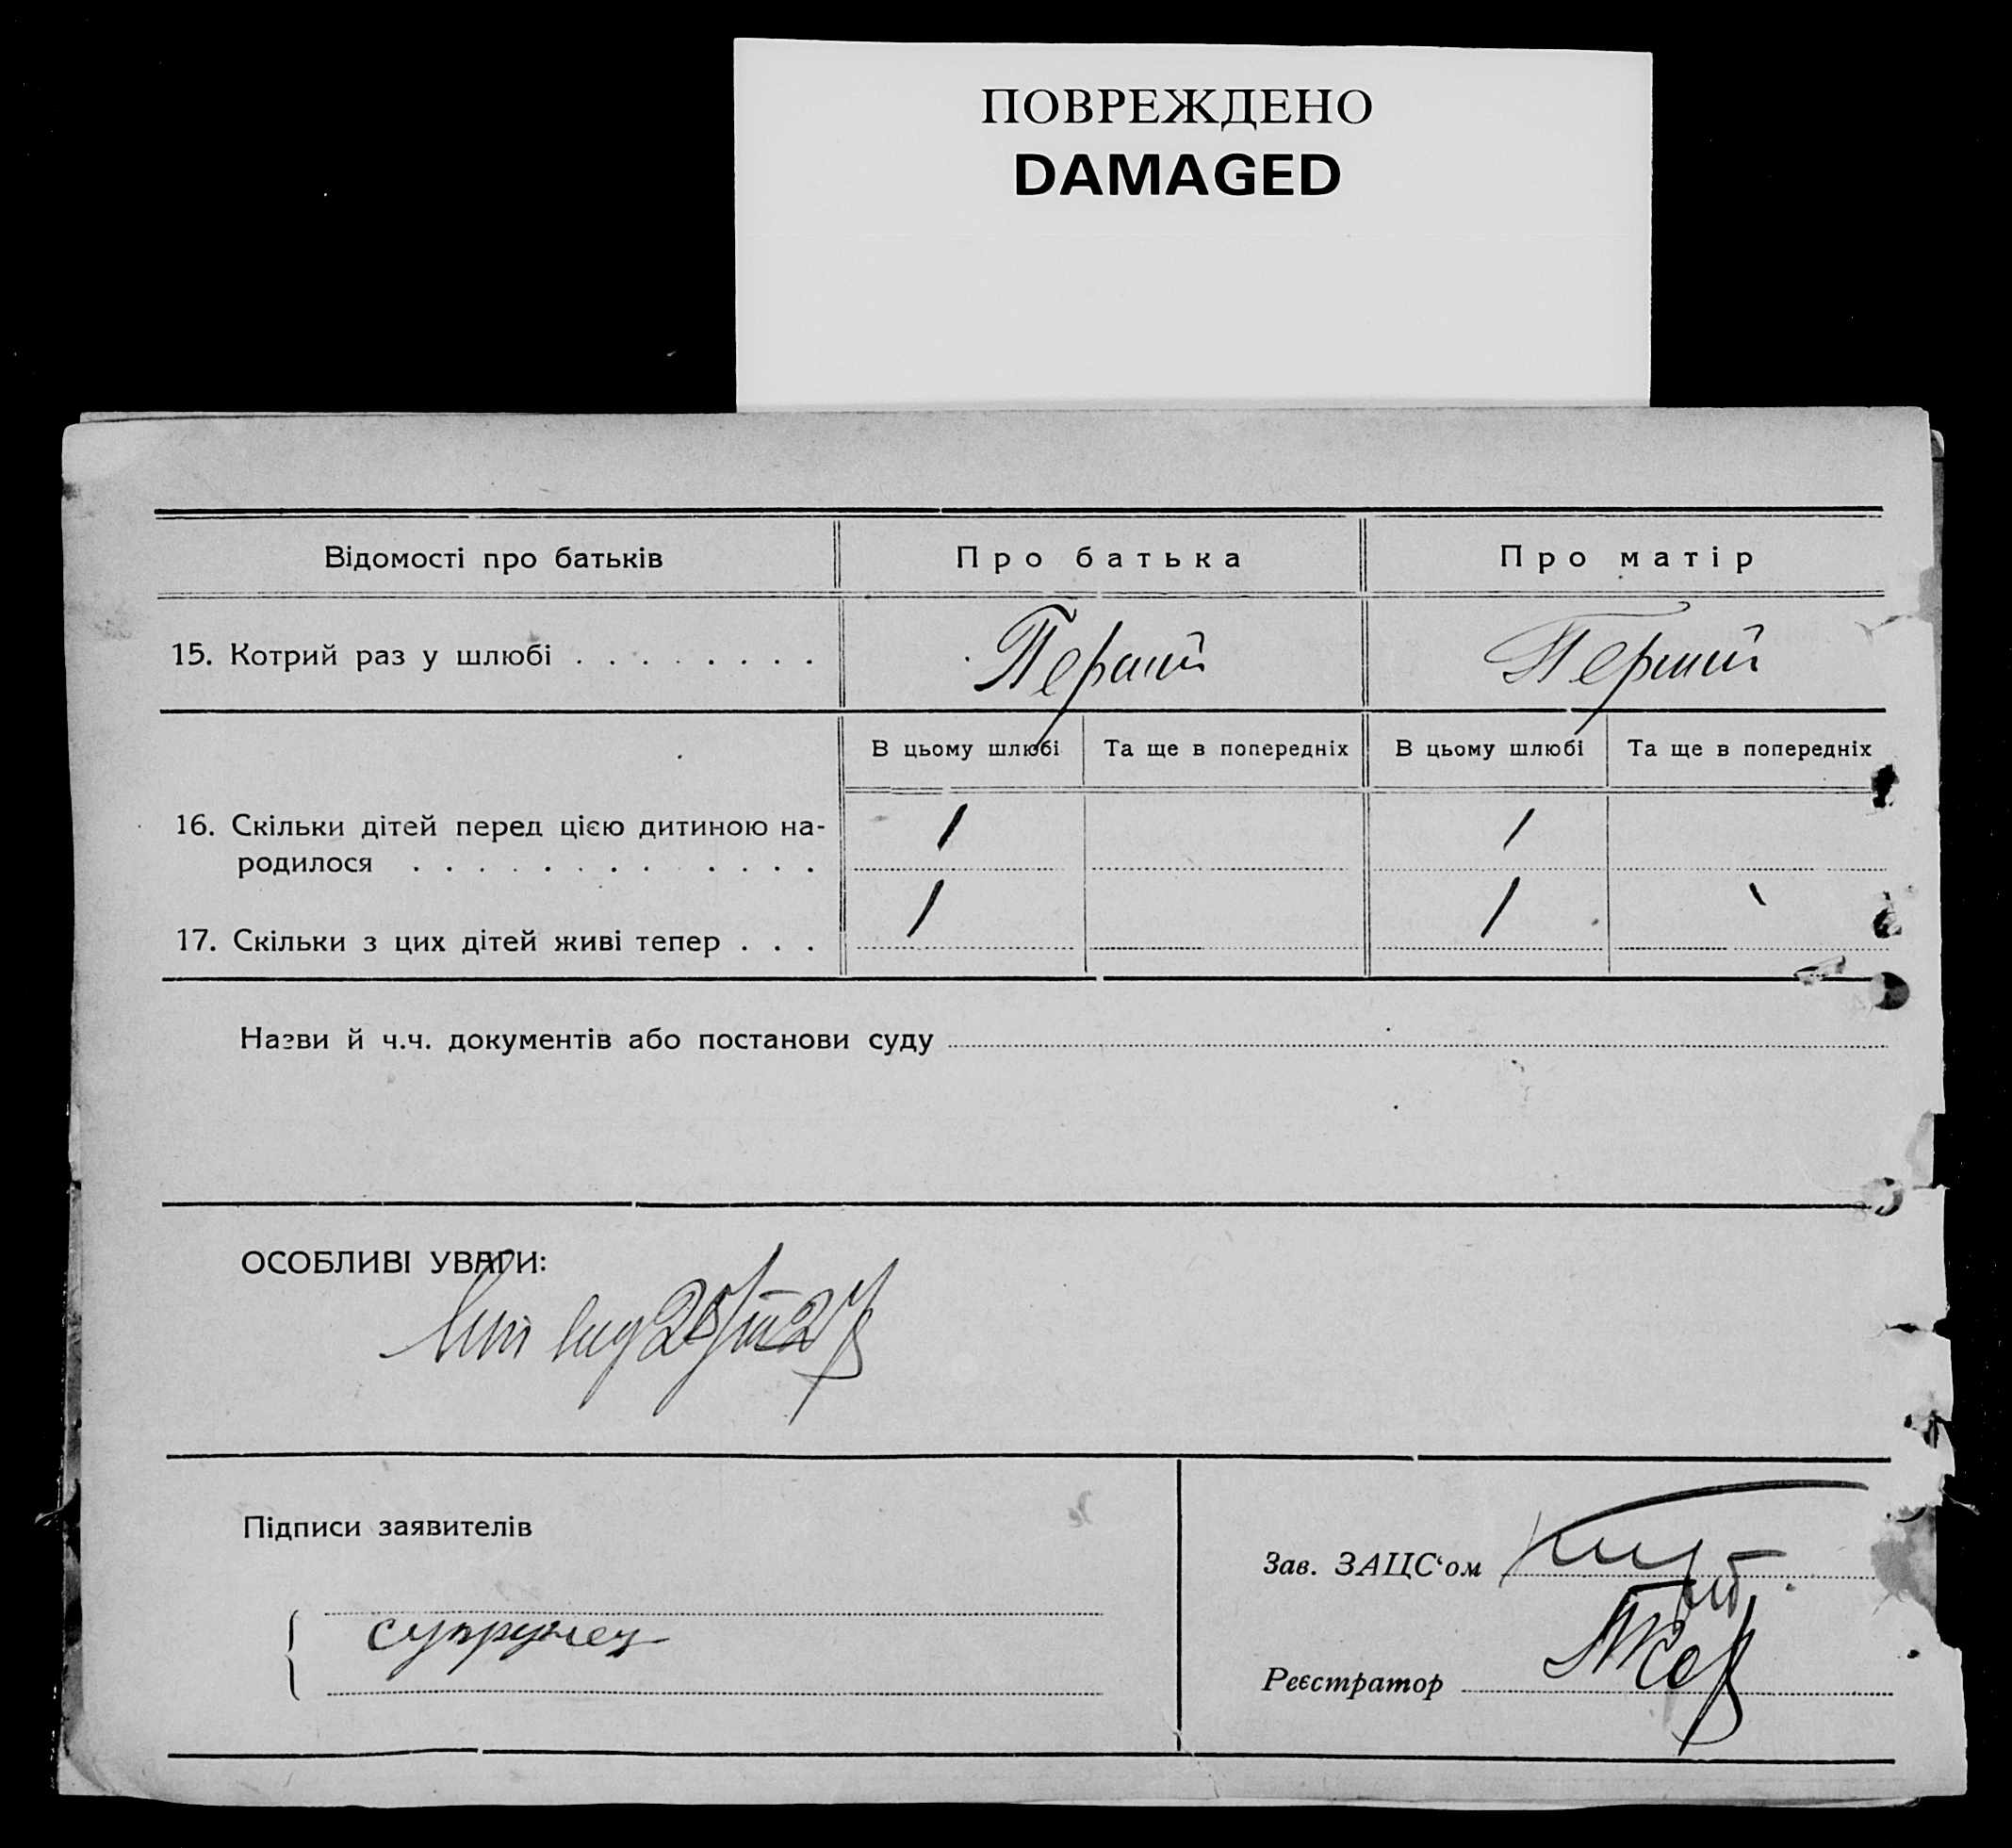 ПОВРЕЖДЕНО
DAMAGED
Відомості про батьків
Про батька
Про матір
15. Котрий раз у шлюбі . . . . . . . .
Перший
Перший
В цьому шлюбі
Та ще в попередніх
В цьому шлюбі
Та ще в попередніх
16. Скільки дітей перед цією дитиною на-
родилося . . . . . . . . . . . .
1
1
17. Скільки з цих дітей живі тепер . . .
1
1
Назви й ч.ч. документів або постанови суду
ОСОБЛИВІ УВАГИ:
Підписи заявителів
Зав. ЗАЦС‘ом
Реєстратор